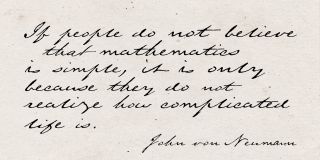 If people do not believe
that mathematics
is simple, it is only
because they do not
realize how complicated
life is.
John von Neumann